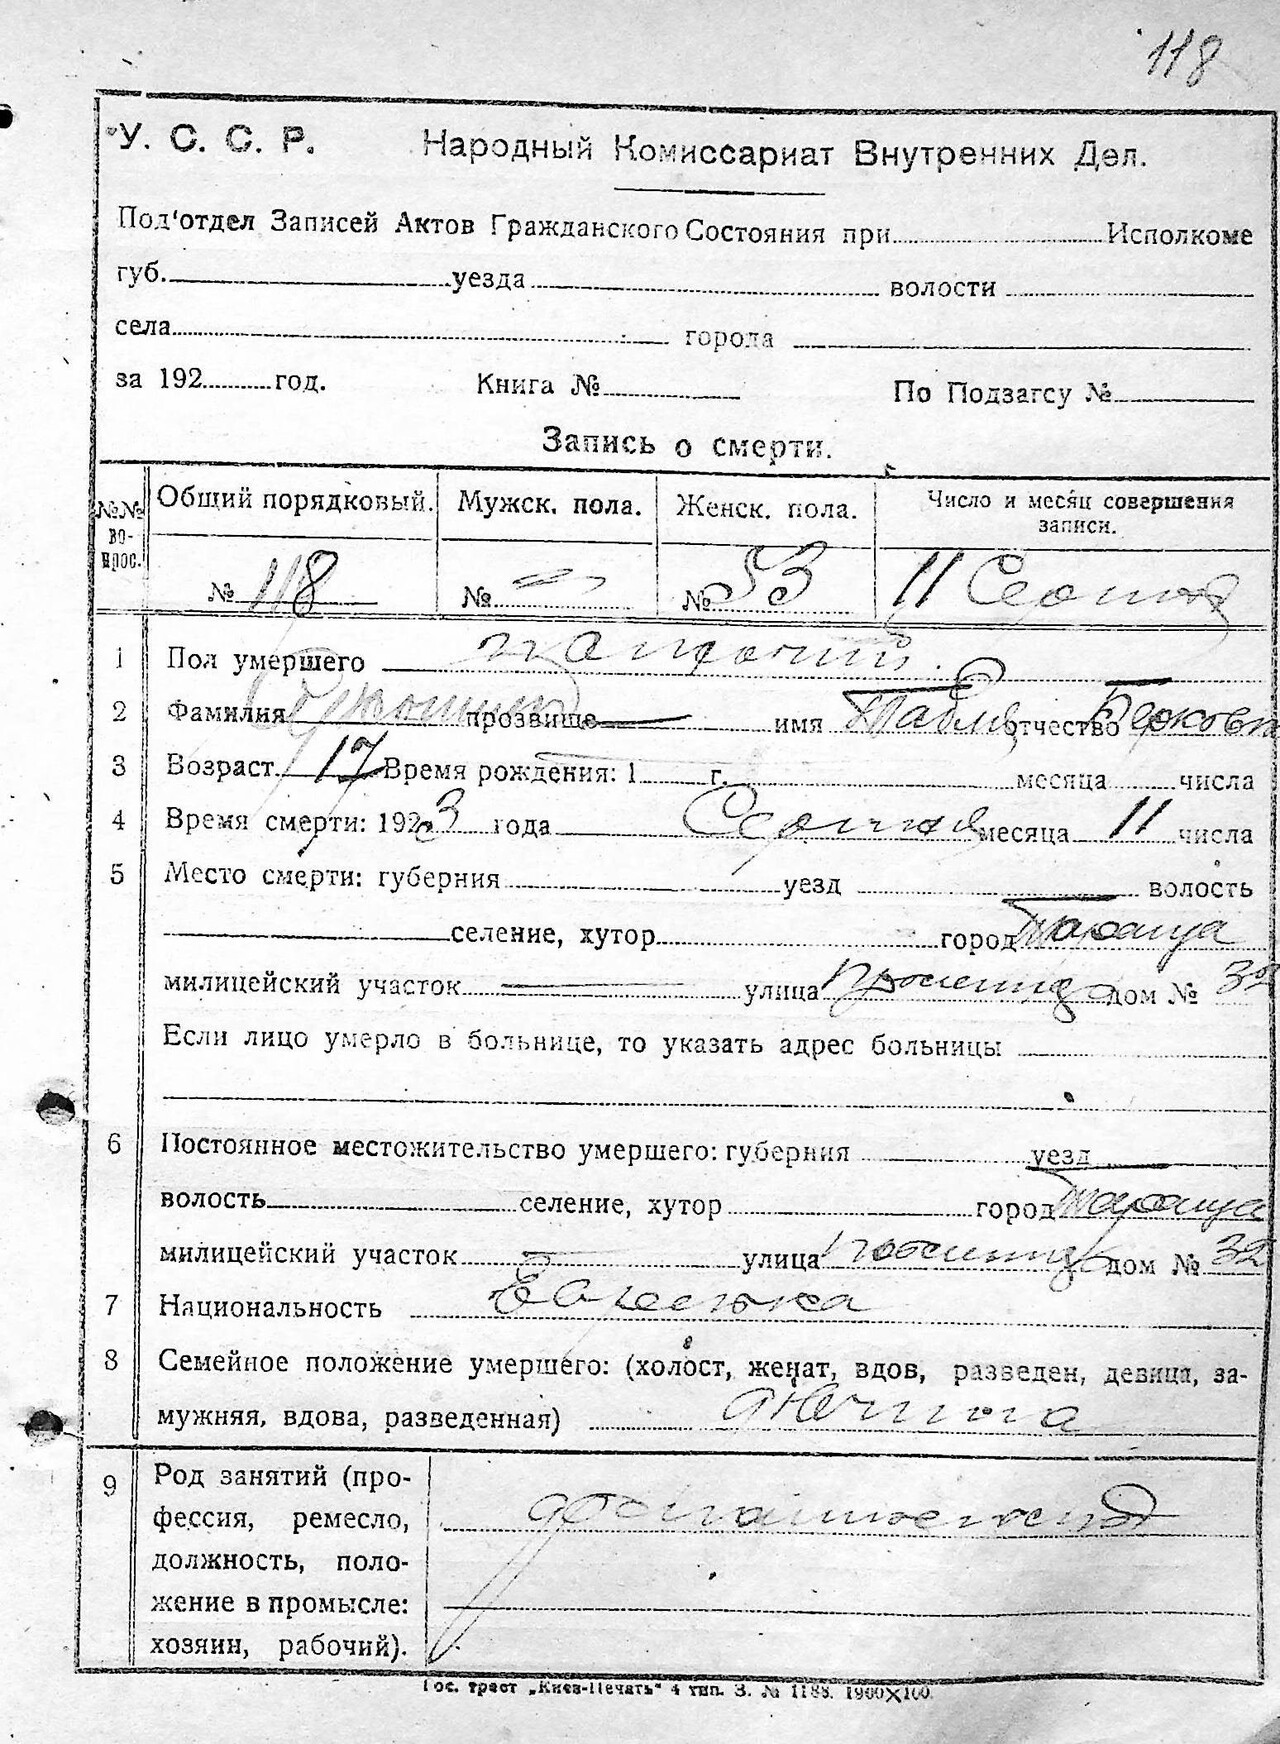 118
У. С. С. Р. Народный Комиссариат Внутренних Дел.
Под'отдел Записей Актов Гражданского Состояния при Исполкоме
губ. уезда волости
села города
за 192 год. Книга № По Подзагсу №
Запись о смерти.
№№ вопрос. Общий порядковый. Мужск. пола. Женск. пола. Число и месяц совершения записи.
№ 118 № № 53 11 Серпня
1 Пол умершего
2 Фамилия прозвище имя отчество
3 Возраст 17 Время рождения: 1 г. месяца числа
4 Время смерти: 1923 года Серпня месяца 11 числа
5 Место смерти: губерния уезд волость
селение, хутор город Тараща
милицейский участок улица дом № 32
Если лицо умерло в больнице, то указать адрес больницы
6 Постоянное местожительство умершего: губерния уезд
волость селение, хутор город Тараща
милицейский участок улица дом № 32
7 Национальность Еврейка
8 Семейное положение умершего: (холост, женат, вдов, разведен, девица, за-
мужняя, вдова, разведенная) дівчина
9 Род занятий (про-
фессия, ремесло,
должность, поло-
жение в промысле:
хозяин, рабочий).
Гос. трест „Киев-Печать" 4 тип. З. № 1188. 1900X100.